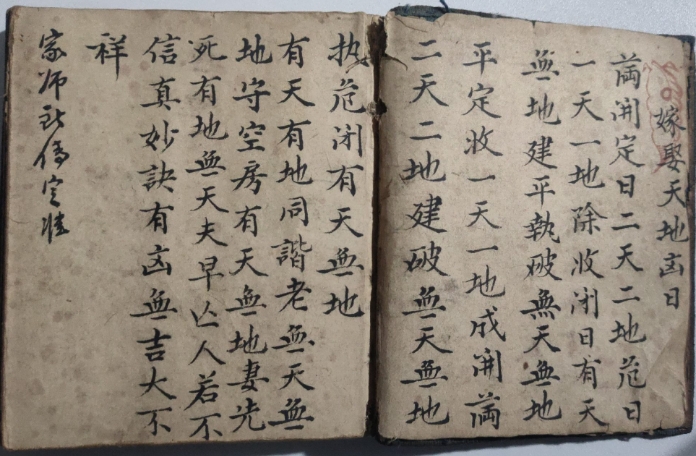 嫁娶天地凶日
㒼開定日二天二地危日
一天一地除收闭日有天
無地建平執破無天無地
平定收一天一地成開㒼
二天二地建破無天無地
执危闭有天無地
有天有地同諧老無天無
地守空房有天無地妻先
死有地無天夫早亾人若不
信真妙訣有凶無吉大不
祥
家师傳定准